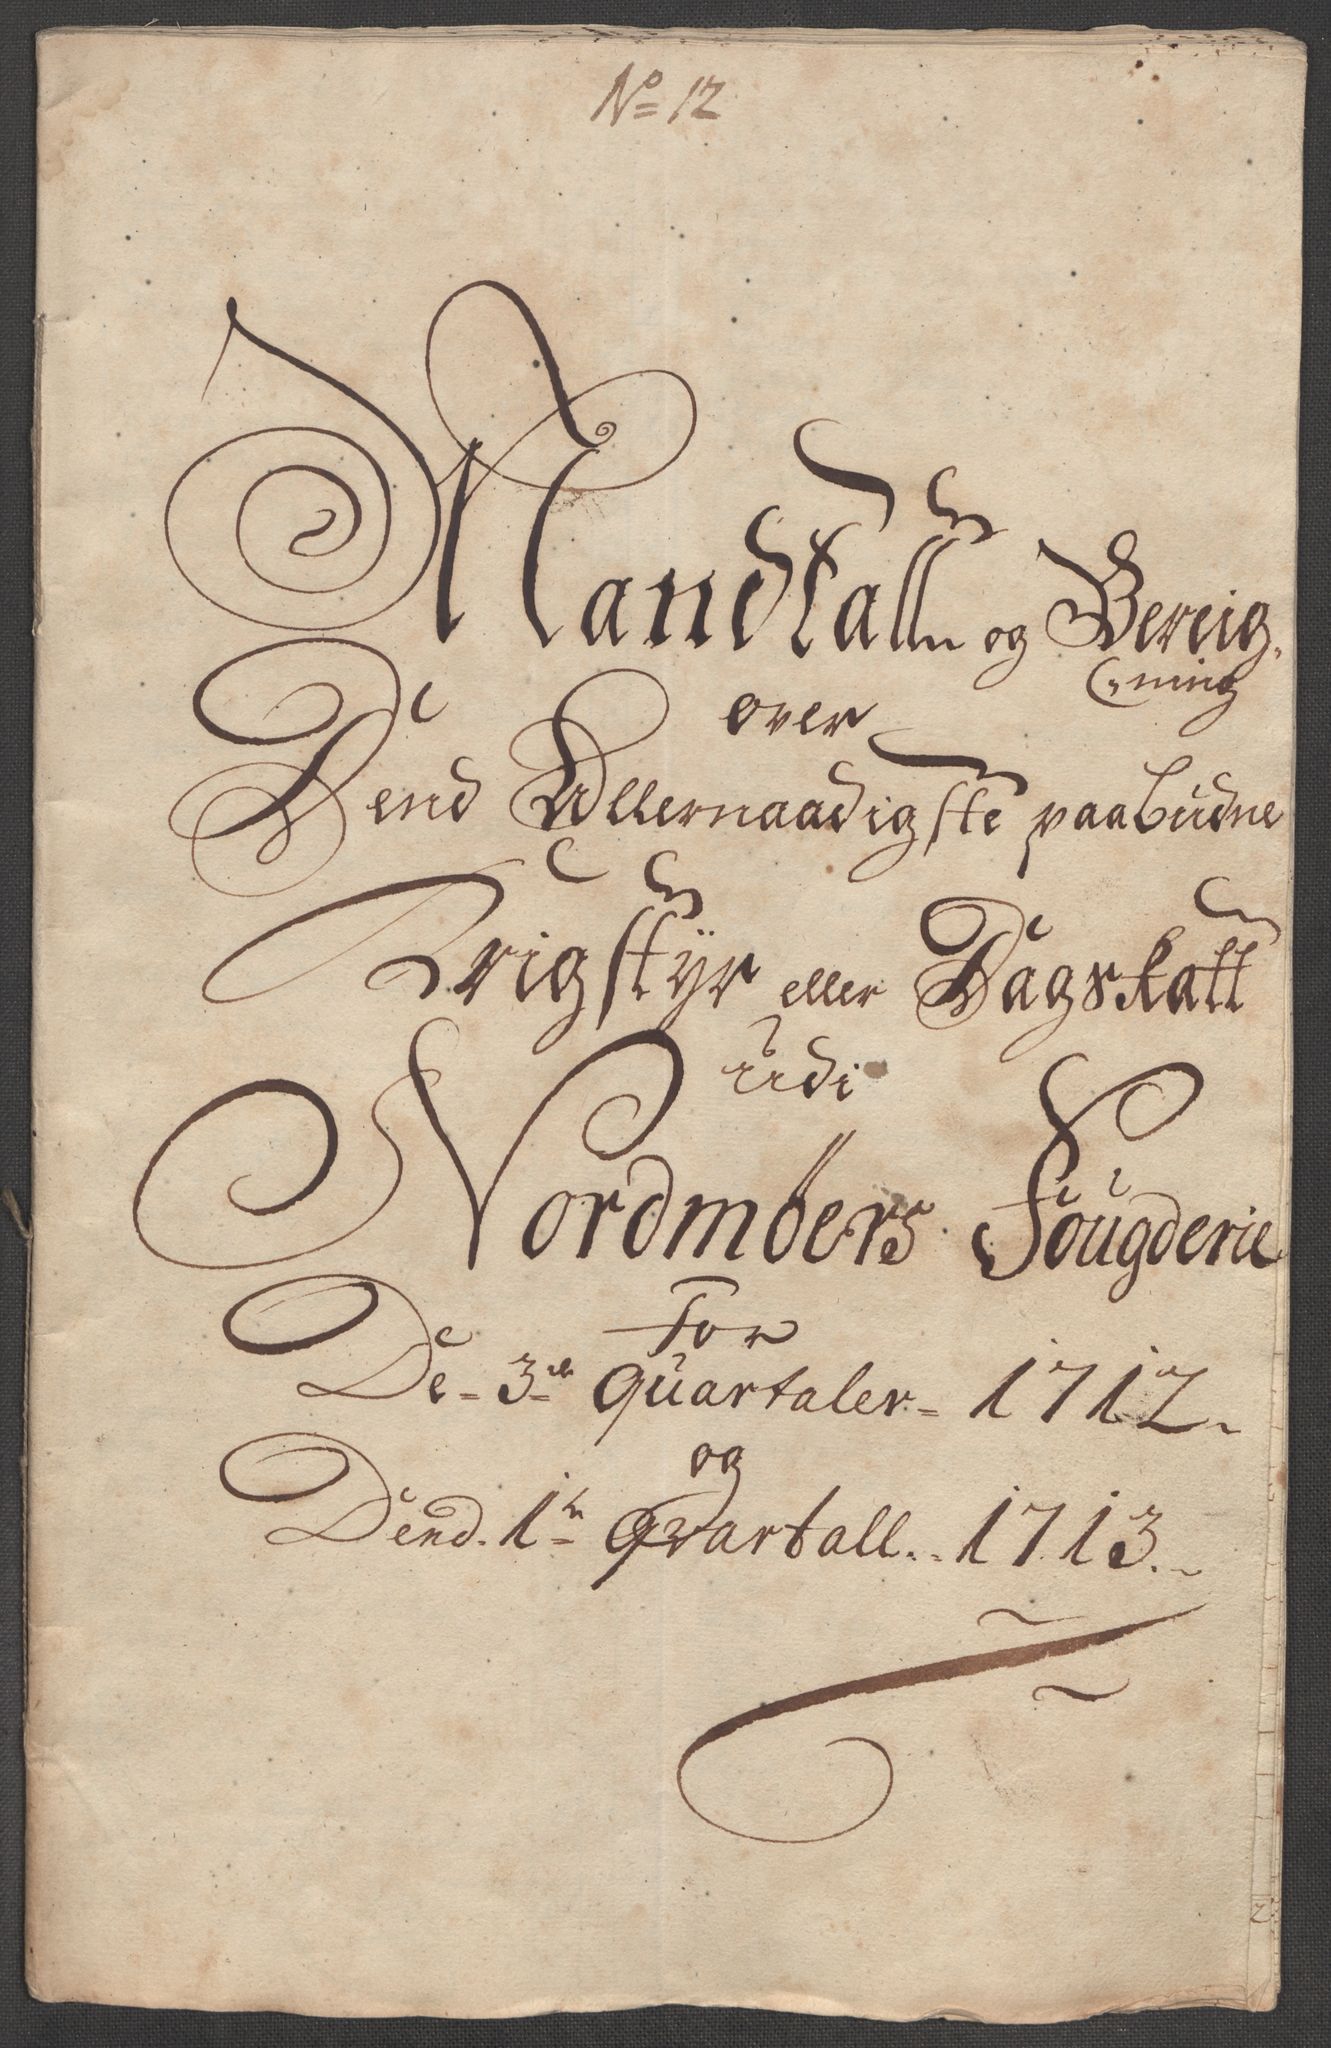 No 12
Mandtall og Bereig-
ning
over
Dend Allernaadigste paabudne
Krigstyr eller Dagskatt
udi
Nordmöers Fougderie
For
De 3de Quartaler 1712
og
Dend 1te Qvartall 1713